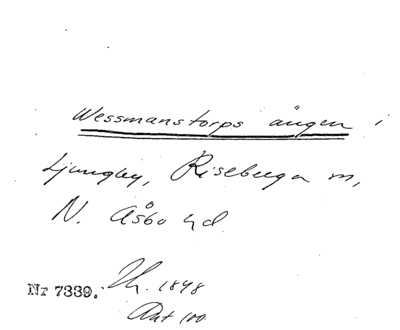 Wessmanstorps ängen i
Ljungby, Riseberga m,
N. Åsbo hd
Nr 7339. Th. 1848
Ant 100